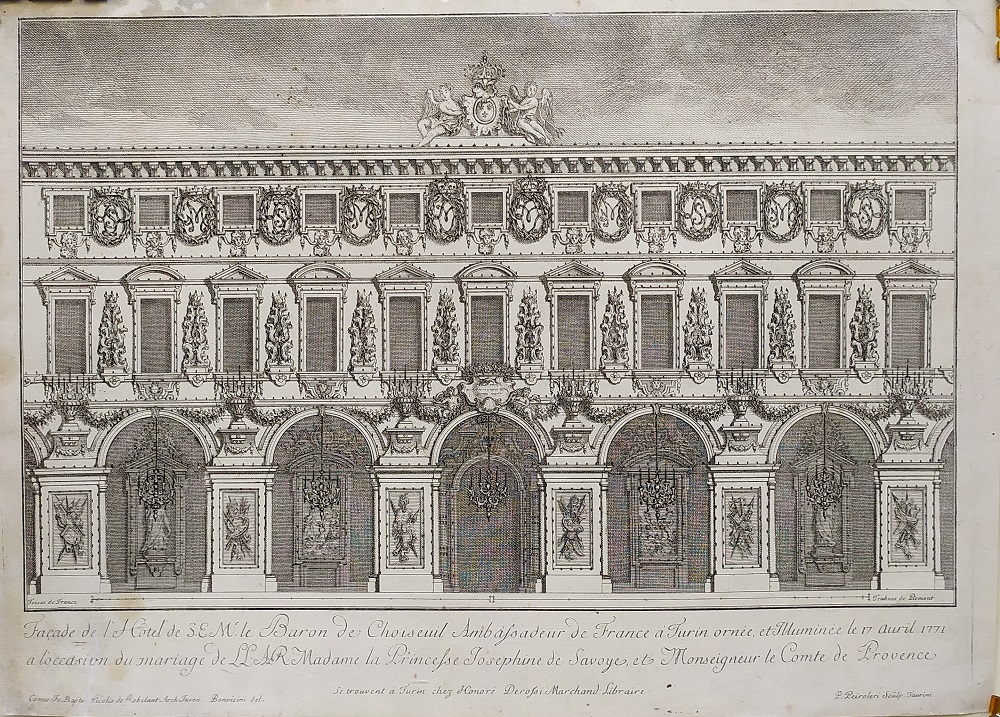 Toises de France
Trabucs de Piemont
Façade de l'Hôtel de S.E.Mr. le Baron de Choiseuil Ambassadeur de France a Turin ornée, et Illuminée le 17 Avril 1771
a l'occasion du mariage de LL.AA.RR. Madame la Princesse Josephine de Savoye, et Monseigneur le Comte de Provence
Se trouvent à Turin chez Honoré Derossi Marchand Libraire
Comes Jo. Bapta. Nicolis de Robelant Arch. Inven. Bonvicini del.
P. Peiroleri Sculp. Taurini